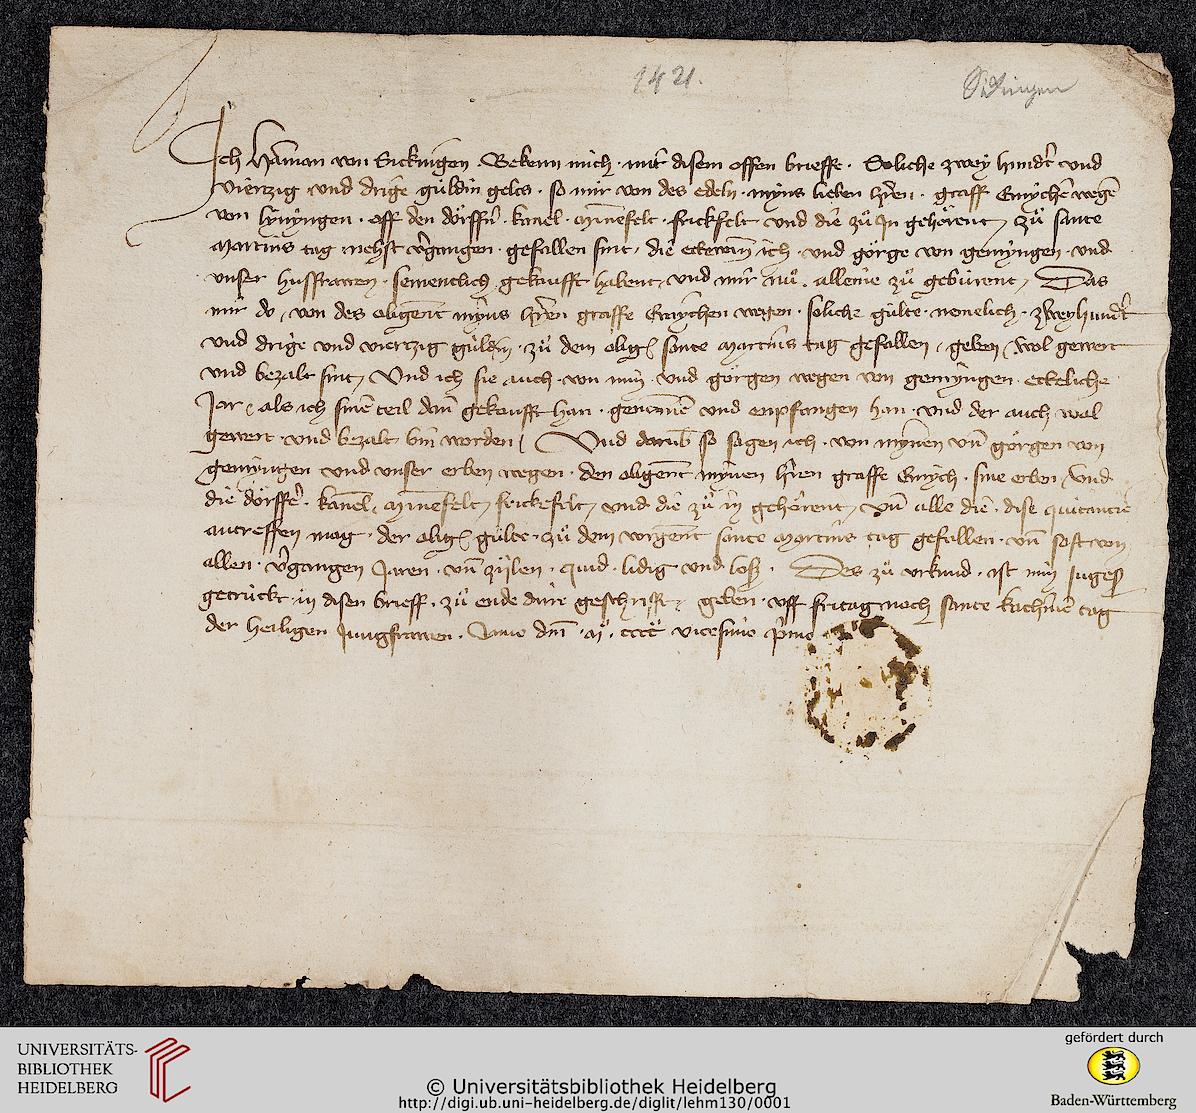 1421.
Sickingen
Ich Ha̅man von Sickingen Bekenn mich · mit disem offen brieffe · Soliche zwey hundt͛ und
vierzig und drige guldin gelts · so mir von des edeln · myns lieben h͛ren · graff Emyche̅ wege̅
von lyny̅ngen · off den dörffn͛ · kanel · My̅nefelt · frickfelt · und die zů In gehörent, zů sante
Martins tag nehst v͛gangen · gefallen sint, die ich · und görge von gemy̅ngen · und
unser hussfrawen · sementlich gekaufft habent, und mir nů · alleine zů gebürent, Das
mir do, von des obgen̅t myns h͛ren graffe Emichen wegen · soliche gülte · nemelich · zweyhundt͛
und drige und vierzig gulden · zů dem obg̅ sante Martins tag gefallen, geben, wol gewert
und bezalt sint, Und ich sie auch · von min · und görgen wegen von gemy̅ngen · eckeliche
Jor, als ich sine̅ teil dan̅ gekaufft han · geno̅mē und enpfangen han · und der auch wol
gewert · und bezalt bin worden, Und darūb so sagen ich · von mynen un̅ görgen von
gemy̅ngen und unser erben wegen · den obgen̅t mynen h͛ren graffe Emych · sine erben, und
die dörff͛e · kanel, My̅nefelt, frickefelt, und die zů in gehörent, un̅ alle die · dise quitancie
antreffen mag · der obg̅ gülte · zů dem vorgen̅t sante Martins tag gefallen · un̅ sost von
allen · v͛gangen Jaren · un̅ zijlen · quid · lidig und loß · Des zů urkund · ist min Ingeß
getruckt · in disen brieff · zů ende dirre geschrifft, geben · uff fritag noch sante kathine̅ tag
der heiligen Jungfrawen · Anno dm̅ · M̊ · cccc̊ vicesimo p͛mo
UNIVERSITÄTS-
BIBLIOTHEK
HEIDELBERG
© Universitätsbibliothek Heidelberg
http://digi.ub.uni-heidelberg.de/diglit/lehm130/0001
gefördert durch
Baden-Württemberg